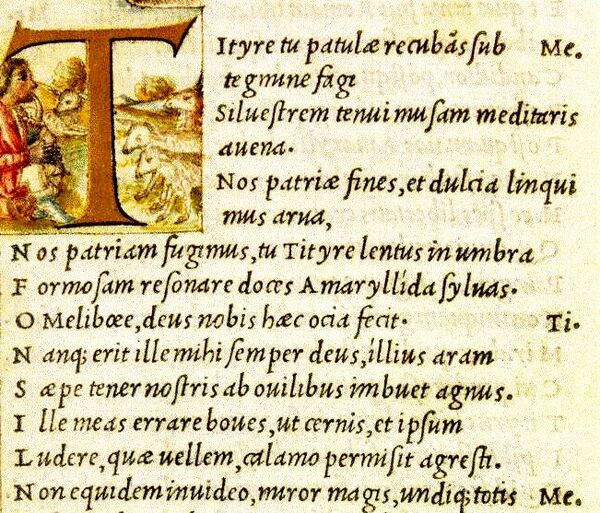 Tityre tu patulæ recubãs sub Me.
tegmine fagi
Siluestrem tenui musam meditaris
auena.
Nos patriæ fines, et dulcia linqui
mus arua,
Nos patriam fugimus, tu Tityre lentus in umbra
Formosam resonare doces Amaryllída syluas.
O Meliboee, deus nobis hæc ocia fecit. Ti.
Nanq; erit ille mihi semper deus, íllius aram
Sæpe tener nostris ab ouilibus imbuet agnus.
Ille meas errare boues, ut cernis, et ipsum
Ludere, quæ uellem, calamo permisit agresti.
Non equidem inuideo, miror magis, undiq; totis Me.